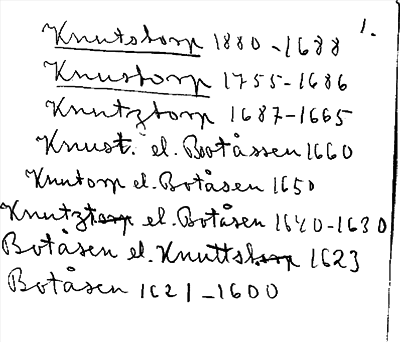 1.
Knutstorp 1880-1688
Knustorp 1755-1686
Knutztorp 1687-1665
Knust. el. Botåssen 1660
Knutorp el. Botåsen 1650
Knutztorp el. Botåsen 1640-1630
Botåsen el. Knuttstorp 1623
Botåsen 1621-1600